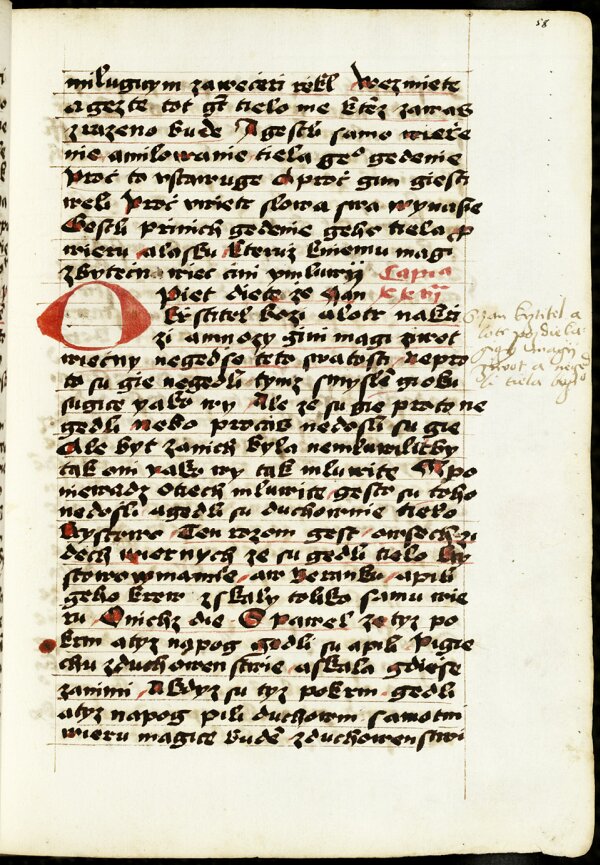 58
milugicym zaweceri rekl Wezmiete
a gezte tot gest tielo me kterez zawas
zrazeno bude A gestli samo wierze
nie amilowanie tiela geho gedenie
Proc to vstawuge A proc gim giesti
weli Proc wiec slowa swa wynasie
Gestli prinich gedenie geho tiela
wieru alasku kteruz kniemu magi
zbytecna wiec cini vmluwu Capitola
Opiet diete ze Jan
krstitel bozi alotr nakri
zi amnozy gini magi zwot
wiecny negedsse teto swatosti Nepro
to su gie negedli tymz smyslem gioku
sugice yako wy Ale ze su gie proto ne
gedli nebo procis nedosli su gie
Ale byt zanich byla nemluwilitby
tak oni yako wy tak mluwite A po
niewadz otiech mluwite gesto su toho
nedosli agedli su duchownie tielo
krystowo Ten rozom gest owssech zi
dech wiernych ze su gedli tielo kry
stowo wmannie aw beranku apili
geho krew zskaly toliko samu wie
ru Onichz die S Pawel ze tyz po
krm atyz napog gedli su apili Pigie
chu zduchowenstwie askala gdiesse
zanimi A kdyz su tyz pokrm gedli
atyz napog pili duchowni samotni
wieru magice bude zduchowenstwi
S Jan krtitel a
lotr po
magij
zwot a nege
li tiela